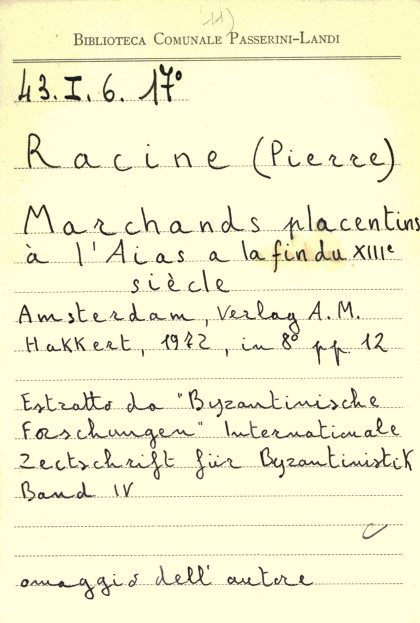 11)
BIBLIOTECA COMUNALE PASSERINI-LANDI
43. I. 6. 17°
Racine (Pierre)
Marchands placentins
à l'Aias a la fin du XIIIe
siècle
Amsterdam, Verlag A. M.
Hakkert, 1972, in 8° pp 12
Estratto da "Byzantinische
Forschungen" Internationale
Zectschrift für Byzantinistik
Band IV
omaggio dell'autore